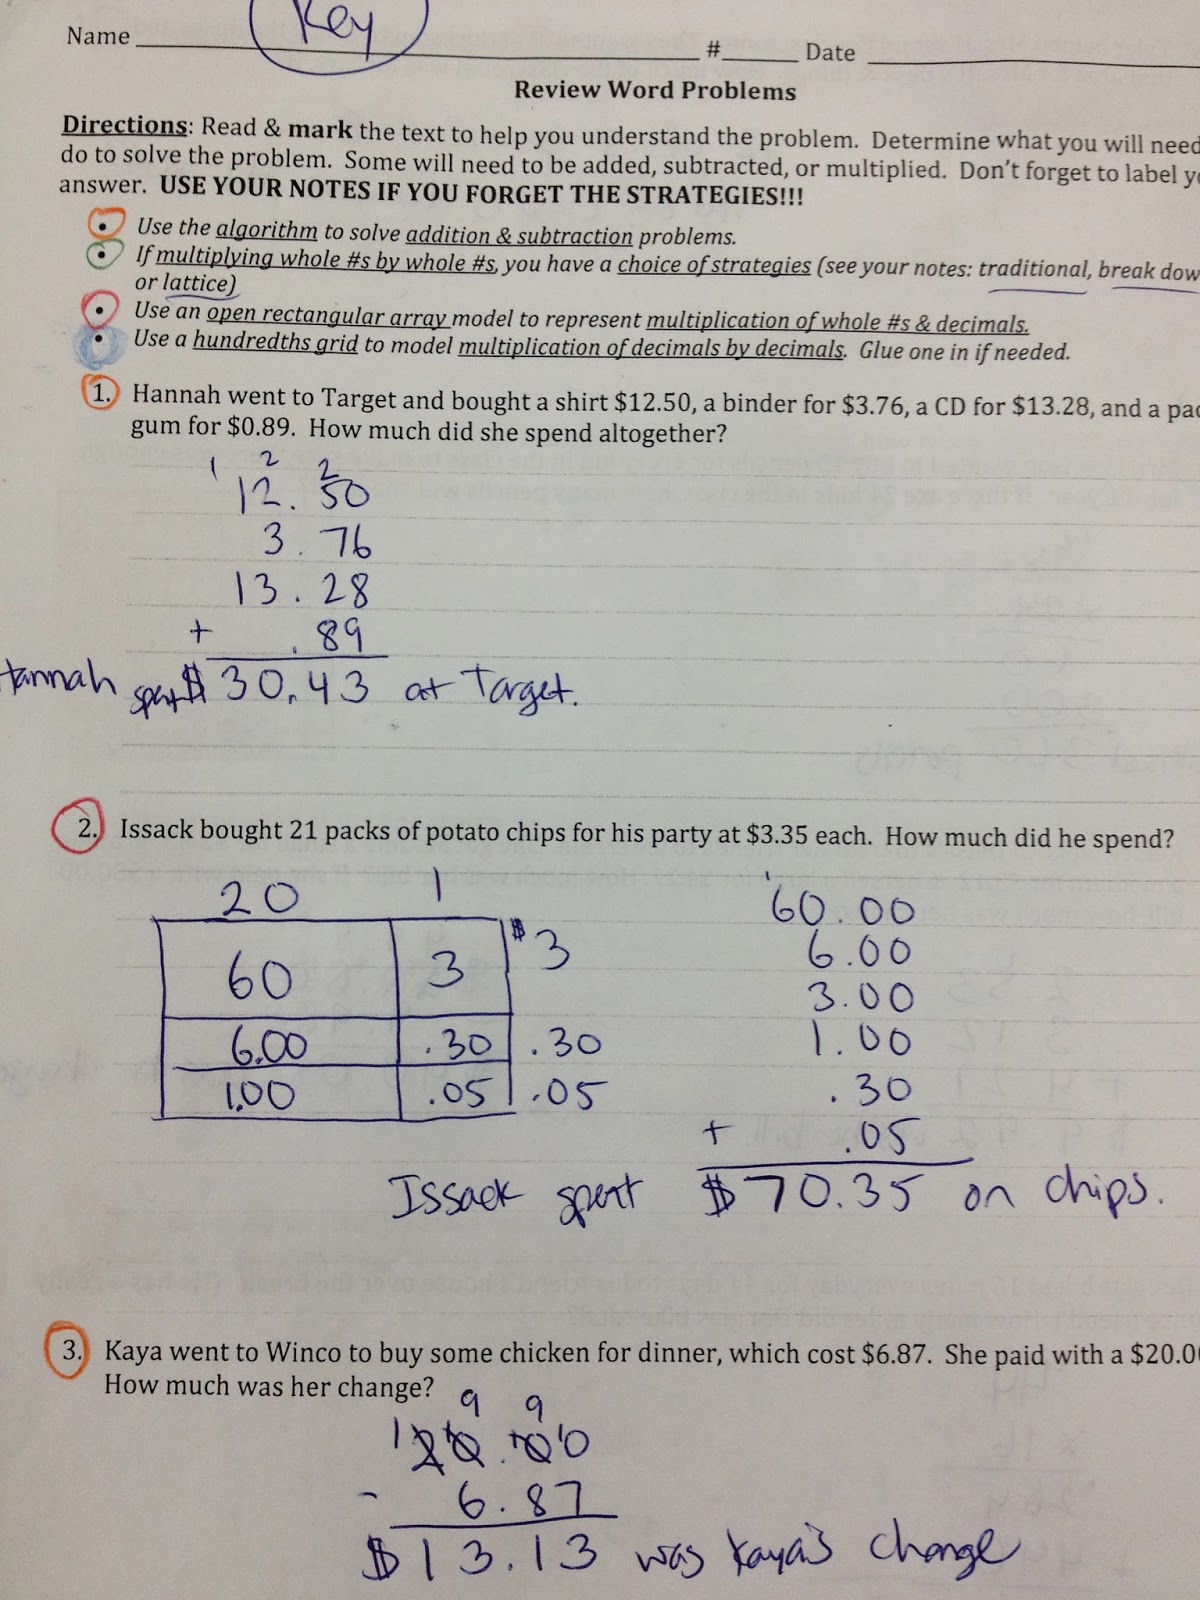 Key
Name # Date
Review Word Problems
Directions: Read & mark the text to help you understand the problem. Determine what you will need
do to solve the problem. Some will need to be added, subtracted, or multiplied. Don't forget to label
answer. USE YOUR NOTES IF YOU FORGET THE STRATEGIES!!!
• Use the algorithm to solve addition & subtraction problems.
• If multiplying whole #s by whole #s, you have a choice of strategies (see your notes: traditional, break dow
or lattice)
• Use an open rectangular array model to represent multiplication of whole #s & decimals.
• Use a hundredths grid to model multiplication of decimals by decimals. Glue one in if needed.
1. Hannah went to Target and bought a shirt $12.50, a binder for $3.76, a CD for $13.28, and a pac
gum for $0.89. How much did she spend altogether?
1 2 2
12.50
3.76
13.28
+ .89
Hannah spent $30.43 at Target.
2. Issack bought 21 packs of potato chips for his party at $3.35 each. How much did he spend?
20 1
60 3 $3
6.00 .30 .30
1.00 .05 .05
1
60.00
6.00
3.00
1.00
.30
+ .05
Issack spent $70.35 on chips.
3. Kaya went to Winco to buy some chicken for dinner, which cost $6.87. She paid with a $20.0
How much was her change?
9 9
1 20.00
- 6.87
$13.13 was Kaya's change